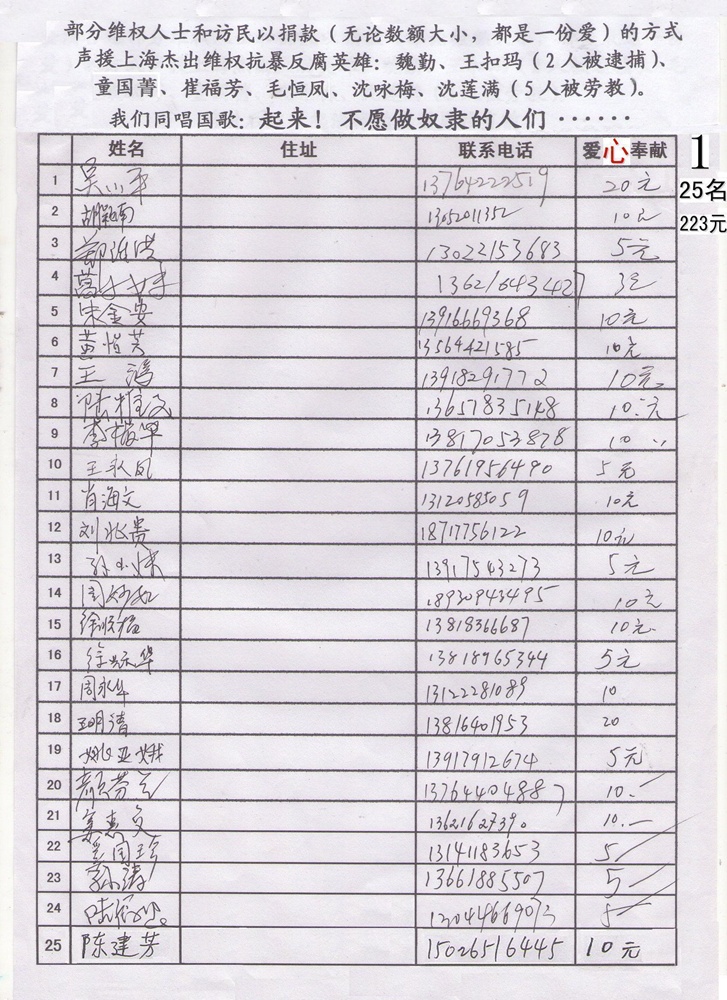 部分维权人士和访民以捐款（无论数额大小，都是一份爱）的方式
声援上海杰出维权抗暴反腐英雄：魏勤、王扣玛（2人被逮捕）、
童国菁、崔福芳、毛恒凤、沈咏梅、沈莲满（5人被劳教）。
我们同唱国歌：起来！不愿做奴隶的人们······
姓名 住址 联系电话 爱心奉献 1
25名
223元
1 13764222519 20元
2 胡颖南 13052011352 10元
3 郑维洪 13022153683 5元
4 13621643427 3元
5 朱金安 13916669368 10元
6 黄恺芳 13564421585 10元
7 王 鸿 13918291772 10元
8 陆桂民 10元
9 李振华 13817053878 10 〃
10 王永凤 13761956490 5元
11 肖海文 13120585059 10元
12 刘兆贵 18717756122 10元
13 13917543273 5元
14 周妙如 18930943495 10元
15 13818366687 10元
16 徐兴华 13818965344 5元
17 周永年 13122281089 10
18 13816401953 20
19 姚亚娥 13917912674 5元
20 颜芬兰 13764404887 10.—
21 1362162739 10.—
22 吴国珍 13141183653 5
23 郭涛 13661885507 5—
24 13044669013 5
25 陈建芳 15026516445 10元